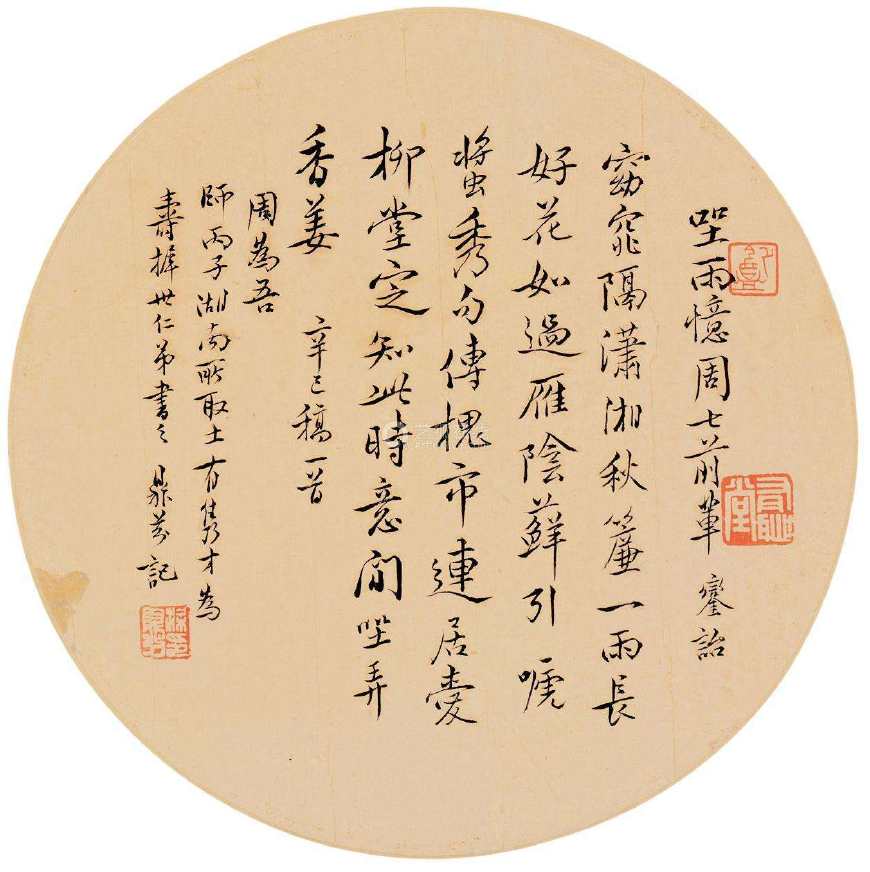 坐雨憶周七前輩 鑾詒
窈窕隔瀟湘秋簾一雨長
好花如過雁陰蘚引啼
螿秀句傳槐市連居愛
柳堂定知此時意閒坐弄
香姜 辛巳稿一首
周為吾
師丙子湖南所取士有雋才為
壽樨世仁弟書之 鼎芬記